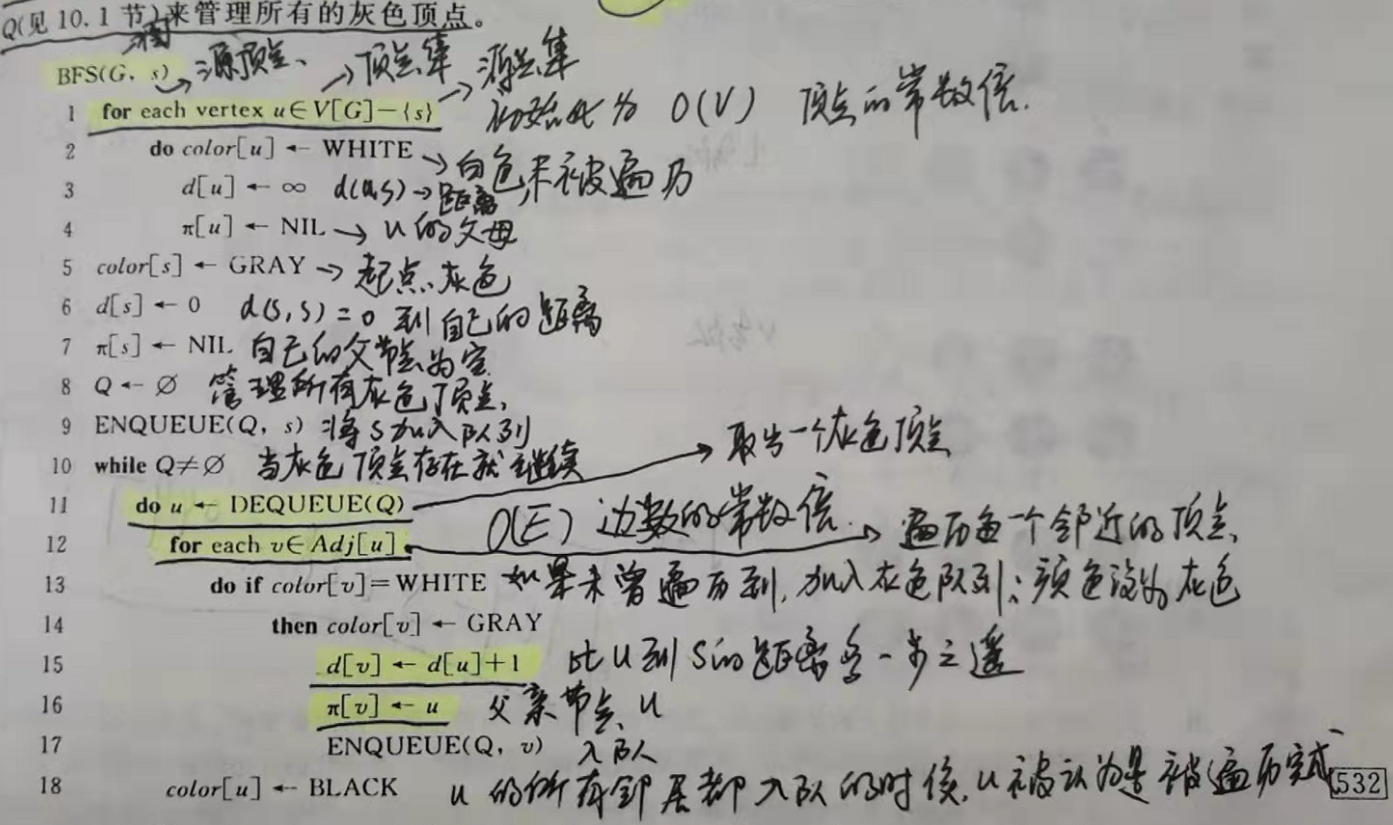 Q(见 10.1 节)来管理所有的灰色顶点。
图
BFS(G, s) → 源顶点、 → 顶点集 → 源点集
1 for each vertex u∈V[G]-{s} 初始化为 O(V) 顶点的常数倍.
2 do color[u] ← WHITE → 白色未被遍历
3 d[u] ← ∞ d(u,s) → 距离
4 π[u] ← NIL → u的父母
5 color[s] ← GRAY → 起点、灰色
6 d[s] ← 0 d(s,s)=0 到自己的距离
7 π[s] ← NIL 自己的父节点为空
8 Q ← ∅ 管理所有灰色顶点、
9 ENQUEUE(Q, s) 将s加入队列
10 while Q≠∅ 当灰色顶点存在就继续 → 取出一个灰色顶点
11 do u ← DEQUEUE(Q) O(E) 边数的常数倍.
12 for each v∈Adj[u] → 遍历每一个邻近的顶点、
13 do if color[v]=WHITE 如果未曾遍历到,加入灰色队列;颜色设为灰色
14 then color[v] ← GRAY
15 d[v] ← d[u]+1 比u到s的距离多一步之遥
16 π[v] ← u 父亲节点、u
17 ENQUEUE(Q, v) 入队
18 color[u] ← BLACK u的所有邻居都入队的时候,u被认为是被遍历完成
532